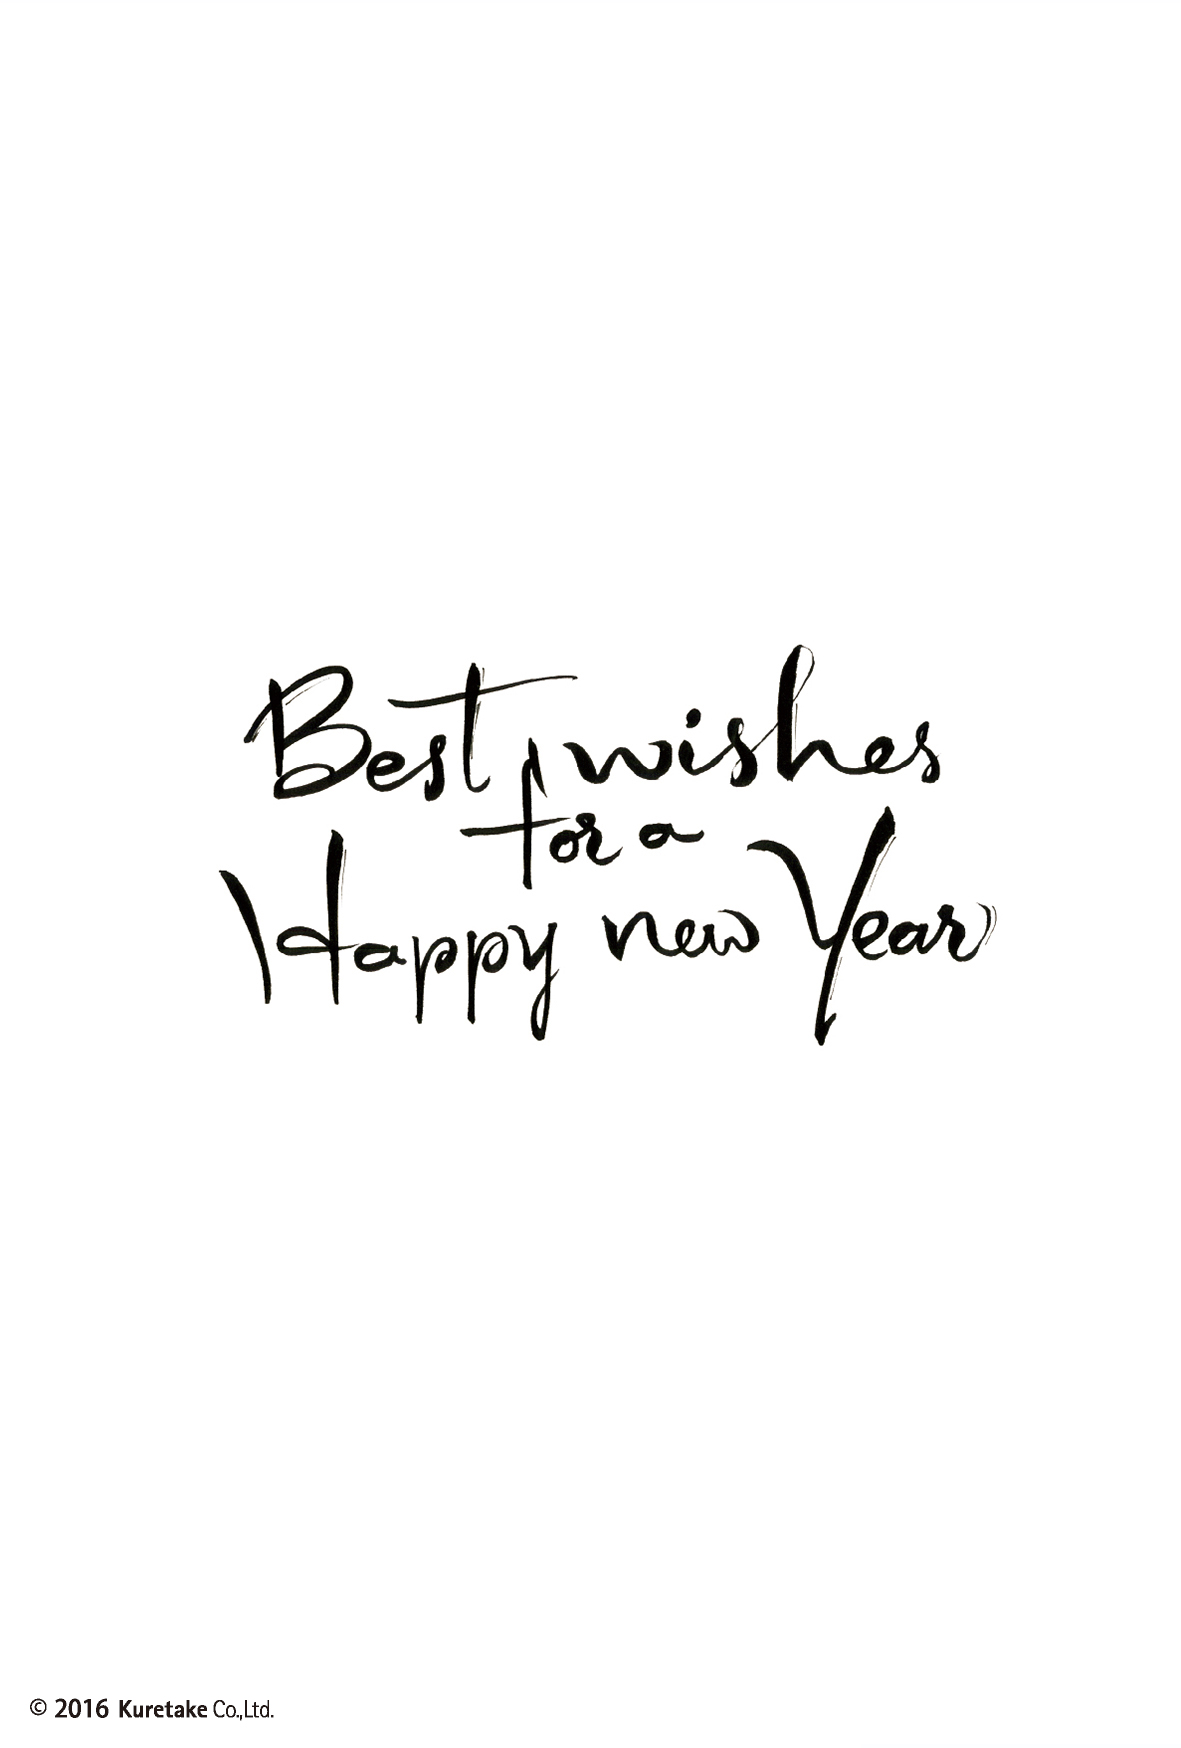 Best wishes
for a
Happy new Year
© 2016 Kuretake Co.,Ltd.